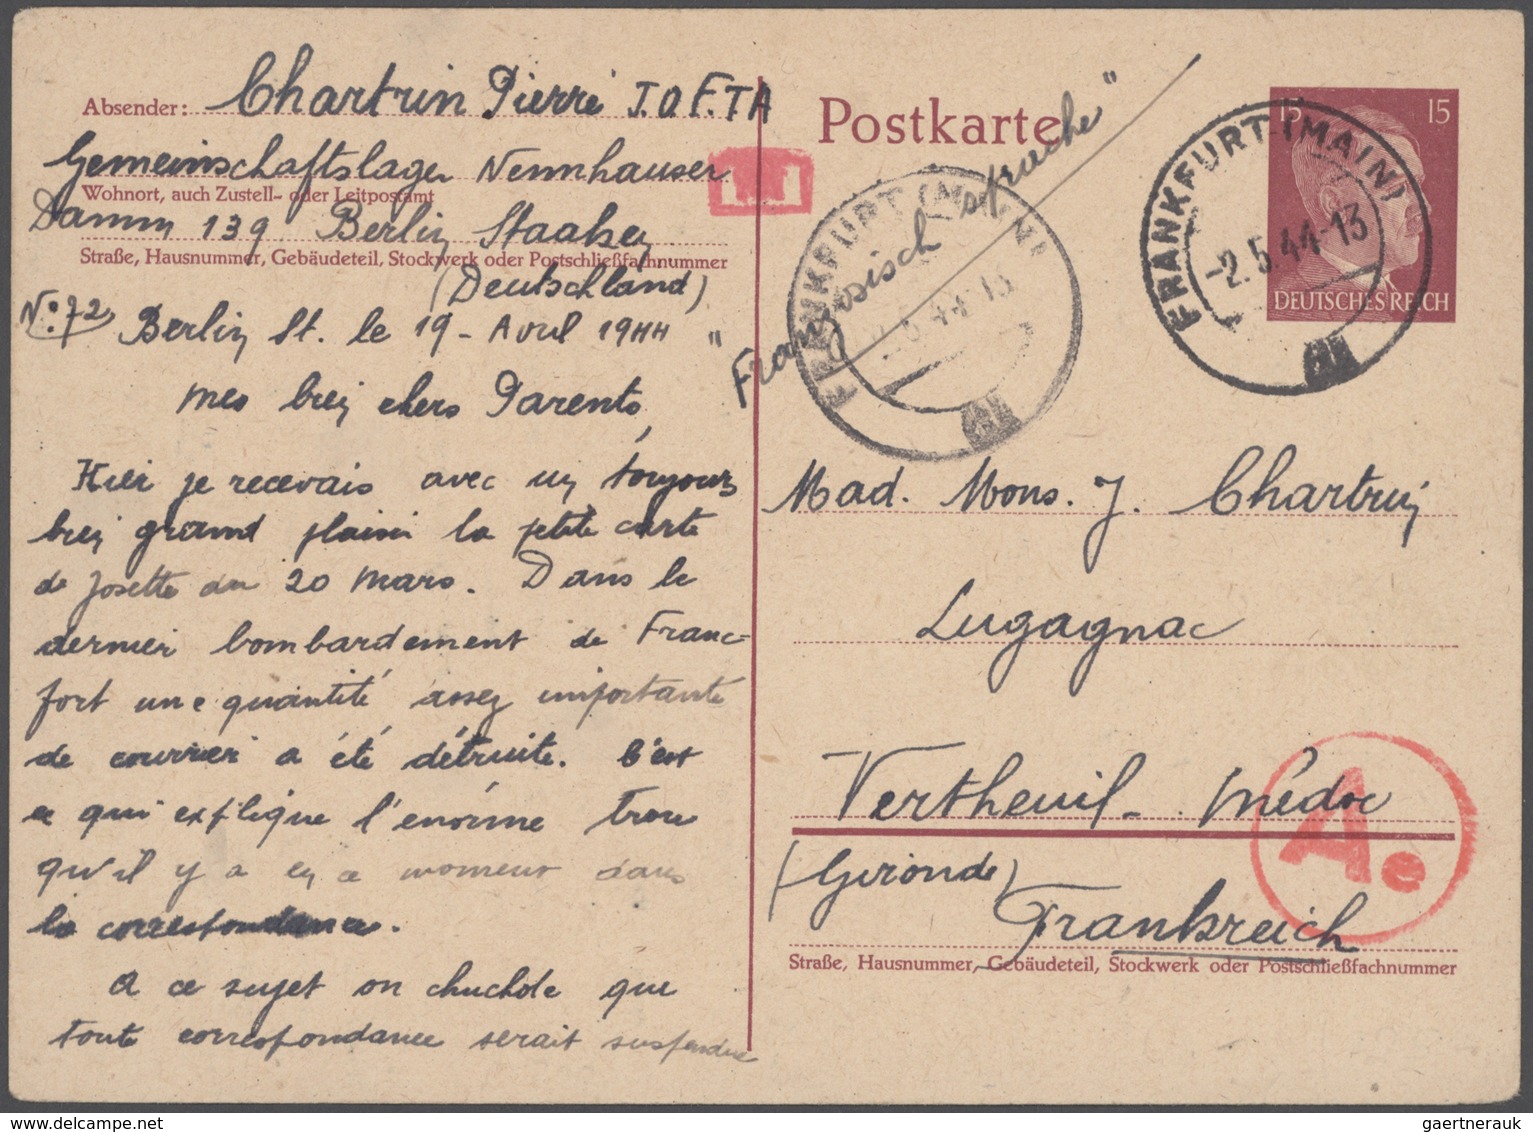 Absender: Chartrin Pierre J.O.F.TA
Gemeinschaftslager Nennhauser
Wohnort, auch Zustell- oder Leitpostamt
Damm 139 Berlin Staaken
Straße, Hausnummer, Gebäudeteil, Stockwerk oder Postschließfachnummer
(Deutschland)
N° 72 Berlin St. le 19 - Avril 1944
mes bien chers Parents
Hier je recevais avec un toujours
bien grand plaisir la petite carte
de Josette du 20 mars. Dans le
dernier bombardement de Franc-
fort une quantité assez importante
de courrier a été détruite. C'est
ce qui explique l'énorme trou
qu'il y a en ce moment dans
la correspondance.
A ce sujet on chuchote que
toute correspondance serait suspendue
Postkarte
"Französisch sprache"
15 15
DEUTSCHES REICH
FRANKFURT (MAIN)
-2.5.44-13
FRANKFURT (MAIN)
-2.5.44-13
Mad. Mons. J. Chartrin
Lugagnac
Vertheuil - Médoc
(Gironde)
Frankreich
Ae
Straße, Hausnummer, Gebäudeteil, Stockwerk oder Postschließfachnummer
gaertnerauk